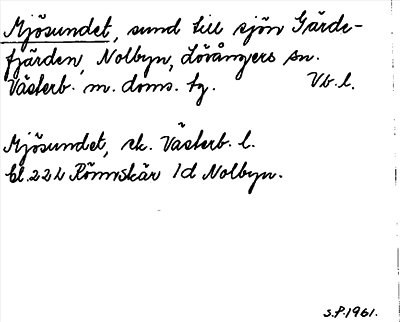 Mjösundet, sund till sjön Gärde-
fjärden, Nolbyn, Lövångers sn.
Västerb. m. doms. tg. Vb. l.
Mjösundet, ek. Västerb. l.
bl. 22 L Rönnskär 1d Nolbyn.
S.P. 1961.